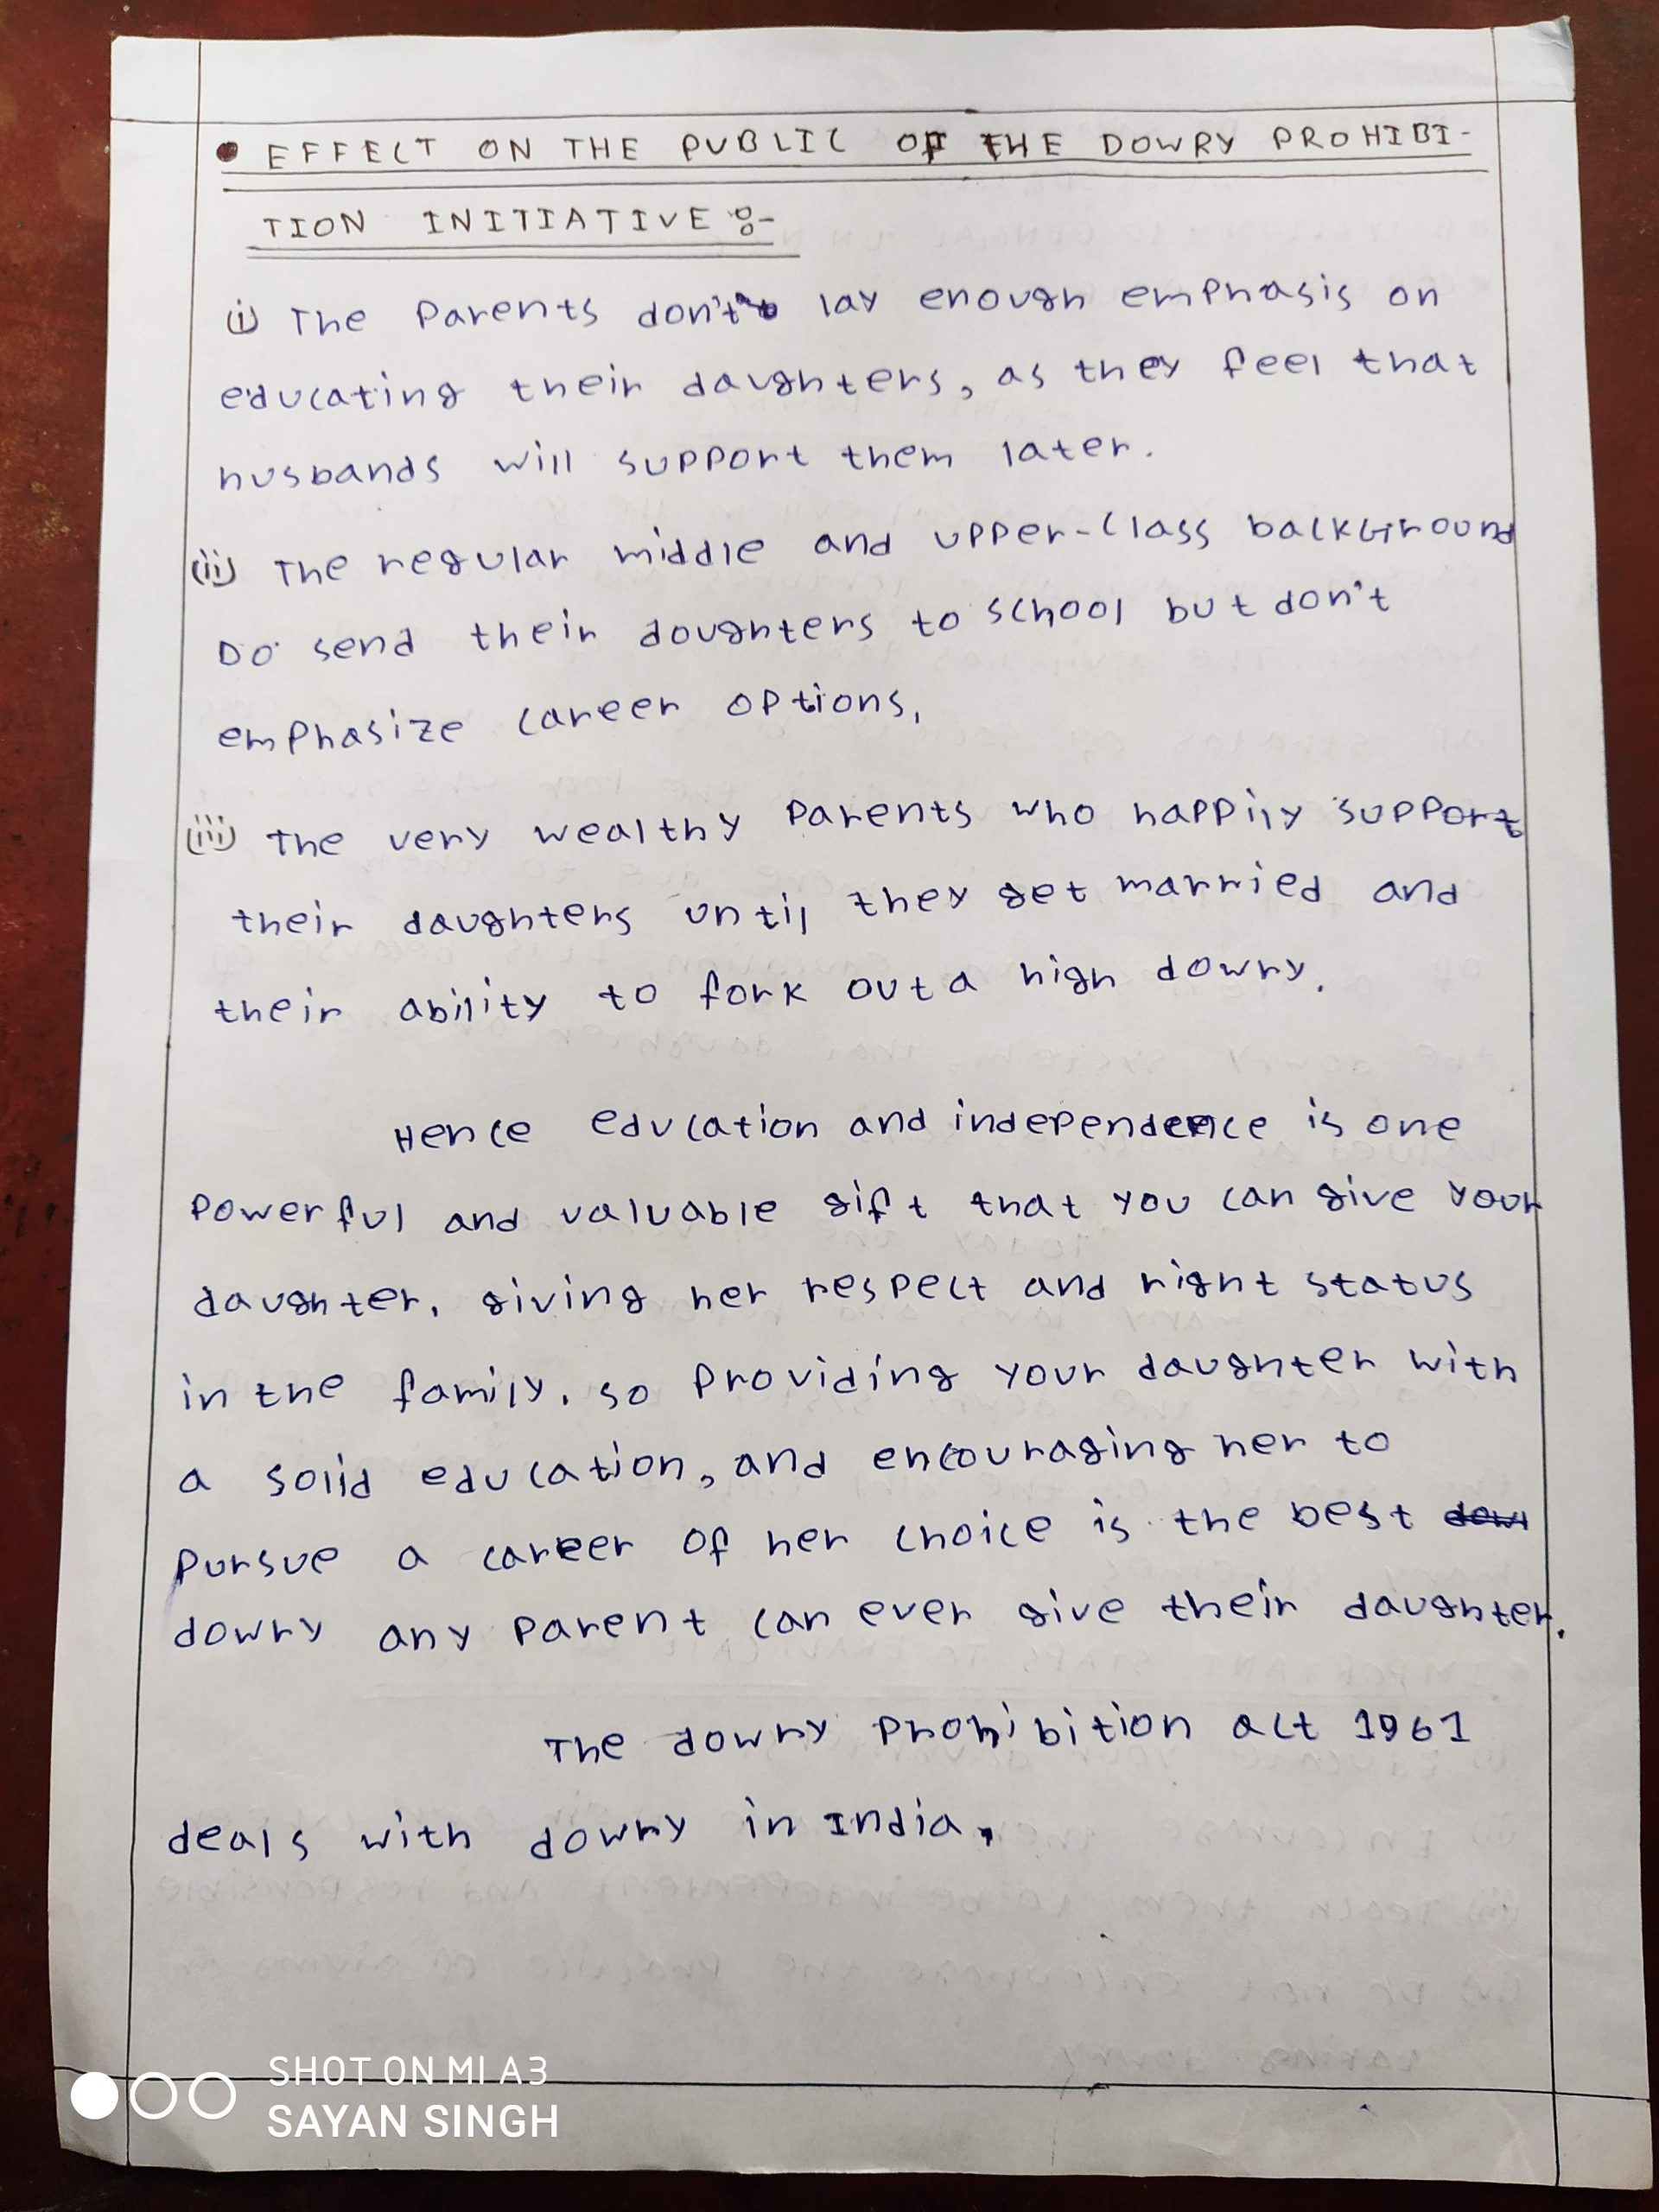 • EFFECT ON THE PUBLIC OF THE DOWRY PROHIBI-
TION INITIATIVE :-
(i) The Parents don't lay enough emphasis on
educating their daughters, as they feel that
husbands will support them later.
(ii) The regular middle and upper-class background
Do send their doughters to school but don't
emphasize career options,
(iii) The very wealthy Parents who happily support
their daughters until they get married and
their ability to fork out a high dowry.
Hence education and independence is one
powerful and valuable gift that you can give your
daughter, giving her respect and right status
in the family. so Providing your daughter with
a solid education, and encouraging her to
pursue a career of her choice is the best
dowry any parent can ever give their daughter.
The dowry Prohibition act 1961
deals with dowry in India.
SHOT ON MI A3
SAYAN SINGH